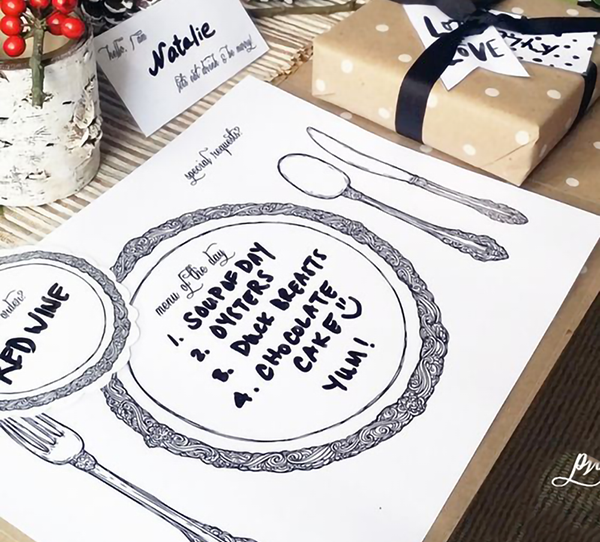 hello, I am
Natalie
lets eat drink & be merry!
LOVE
special requests?
menu of the day
1. SOUP OF DAY
2. OYSTERS
3. DUCK BREATS
4. CHOCOLATE
CAKE
YUM!
order?
RED WINE